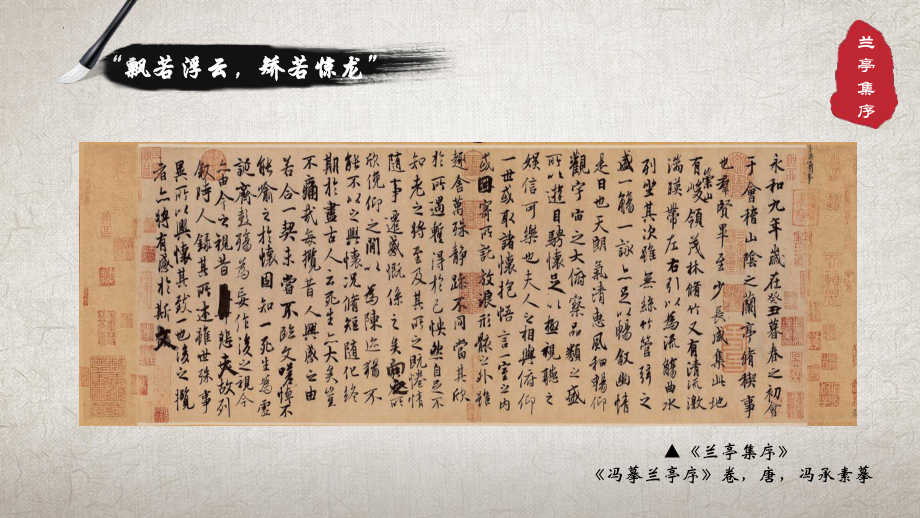 “飘若浮云，矫若惊龙”
兰亭集序
永和九年歲在癸丑暮春之初會
于會稽山陰之蘭亭脩稧事
也羣賢畢至少長咸集此地
有崇山峻領茂林脩竹又有清流激
湍暎帶左右引以為流觴曲水
列坐其次雖無絲竹管弦之
盛一觴一詠亦足以暢敘幽情
是日也天朗氣清惠風和暢仰
觀宇宙之大俯察品類之盛
所以遊目騁懷足以極視聽之
娛信可樂也夫人之相與俯仰
一世或取諸懷抱悟言一室之內
或因寄所託放浪形骸之外雖
趣舍萬殊靜躁不同當其欣
於所遇蹔得於己怏然自足不
知老之將至及其所之既惓情
隨事遷感慨係之矣向之所
欣俛仰之閒以為陳迹猶不
能不以之興懷況脩短隨化終
期於盡古人云死生亦大矣豈
不痛哉每攬昔人興感之由
若合一契未嘗不臨文嗟悼不
能喻之於懷固知一死生為虛
誕齊彭殤為妄作後之視今
亦由今之視昔悲夫故列
敘時人錄其所述雖世殊事
異所以興懷其致一也後之攬
者亦將有感於斯文
▲《兰亭集序》
《冯摹兰亭序》卷，唐，冯承素摹